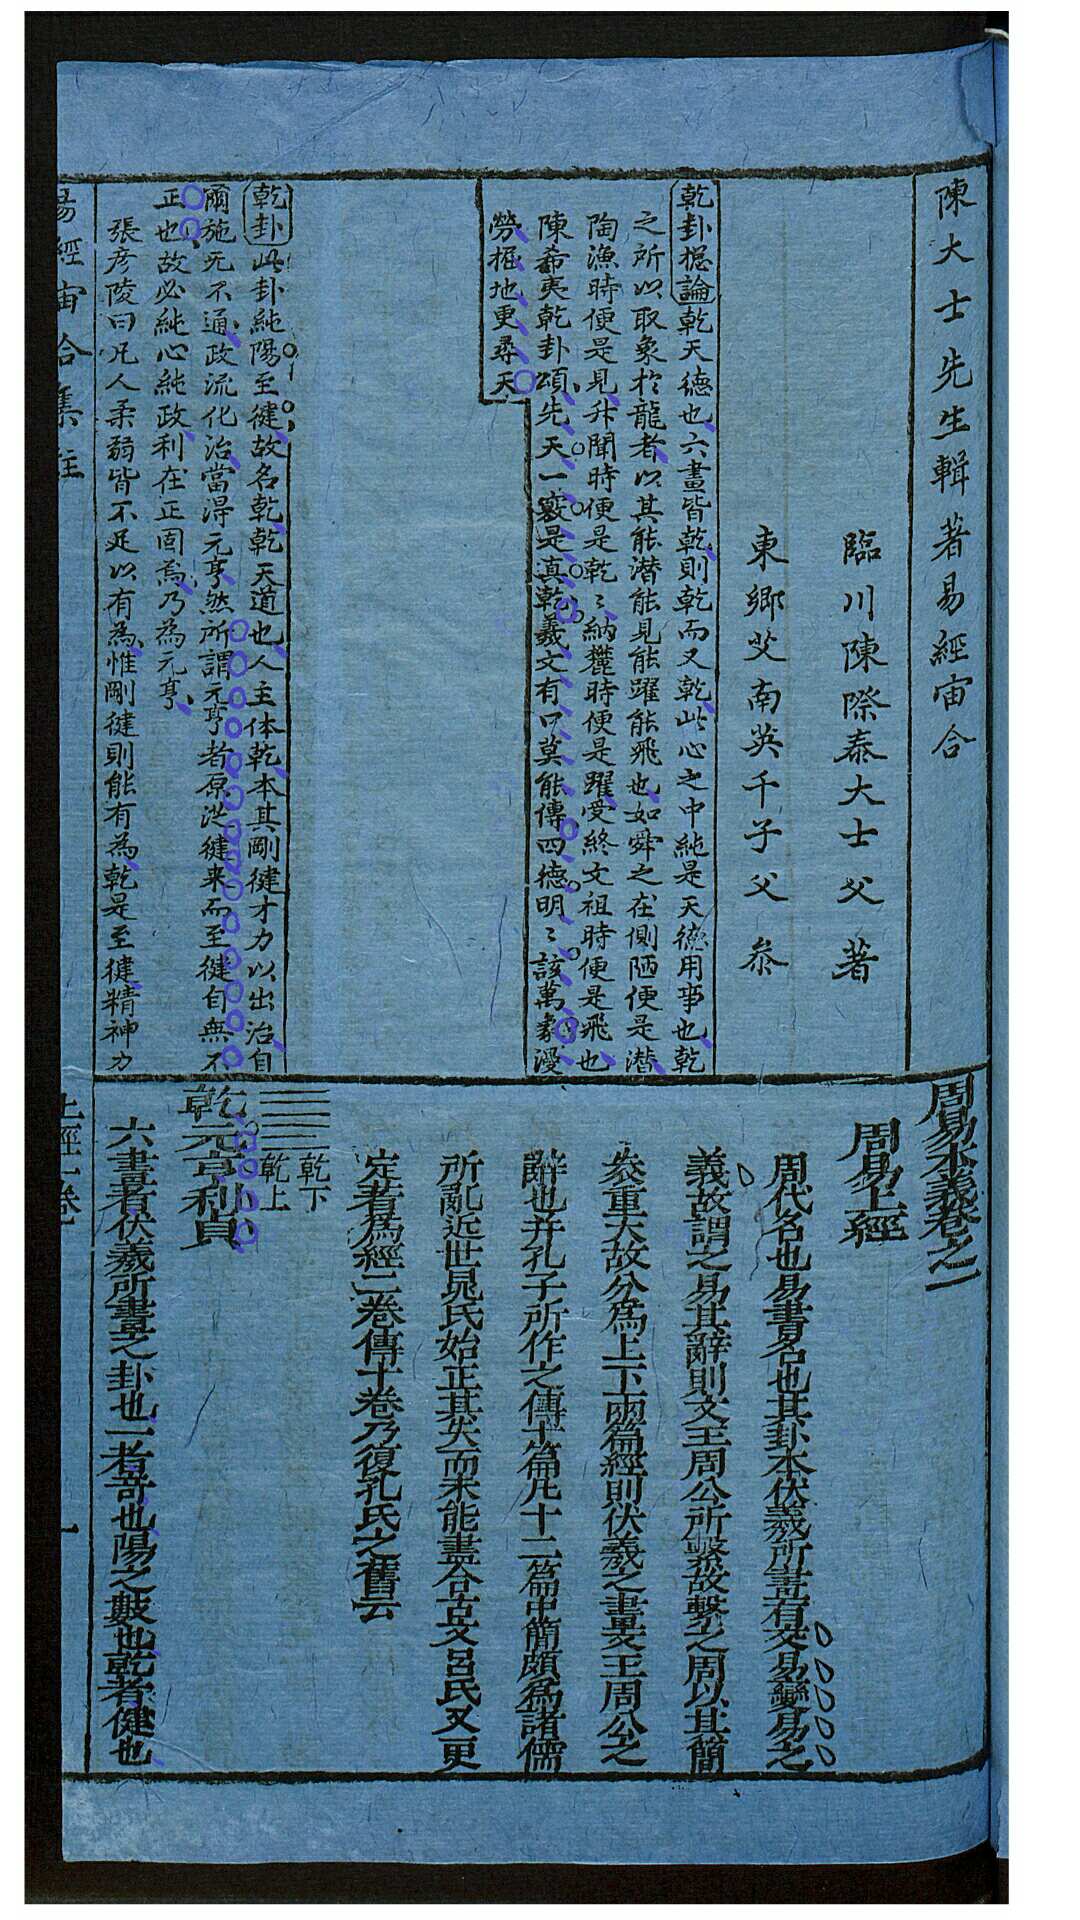 陳大士先生輯著易經宙合
臨川陳際泰大士父著
東鄉艾南英千子父叅
乾卦總論乾天德也六畫皆乾則乾而又乾此心之中純是天德用事也乾
之所以取象於龍者以其能潛能見能躍能飛也如舜之在側陋便是潛
陶漁時便是見升聞時便是乾〻納麓時便是躍受終文祖時便是飛也
陳希夷乾卦頌先天一竅是真乾羲文有口莫能傳四德明〻該萬象漫
勞掘地更尋天
乾卦此卦純陽至健故名乾乾天道也人主体乾本其剛健才力以出治自
爾施无不通政流化洽當得元亨然所謂元亨者原從健来而至健自無不
正也故必純心純政利在正固爲乃為元亨
張彦陵曰凡人柔弱皆不足以有為惟剛健則能有為乾是至健精神力
易經宙合集註
周易本義卷之一
周易上經
周代名也易書名也其卦本伏羲所畫有交易變易之
義故謂之易其辭則文王周公所繫故繫之周以其簡
袠重大故分爲上下兩篇經則伏羲之畫文王周公之
辭也并孔子所作之傳十篇凡十二篇中簡頗爲諸儒
所亂近世晁氏始正其失而未能盡合古文呂氏又更
定著爲經二卷傳十卷乃復孔氏之舊云
乾下
乾上
乾元亨利貞
六畫者伏羲所畫之卦也一者竒也陽之數也乾者健也
上經一卷
一